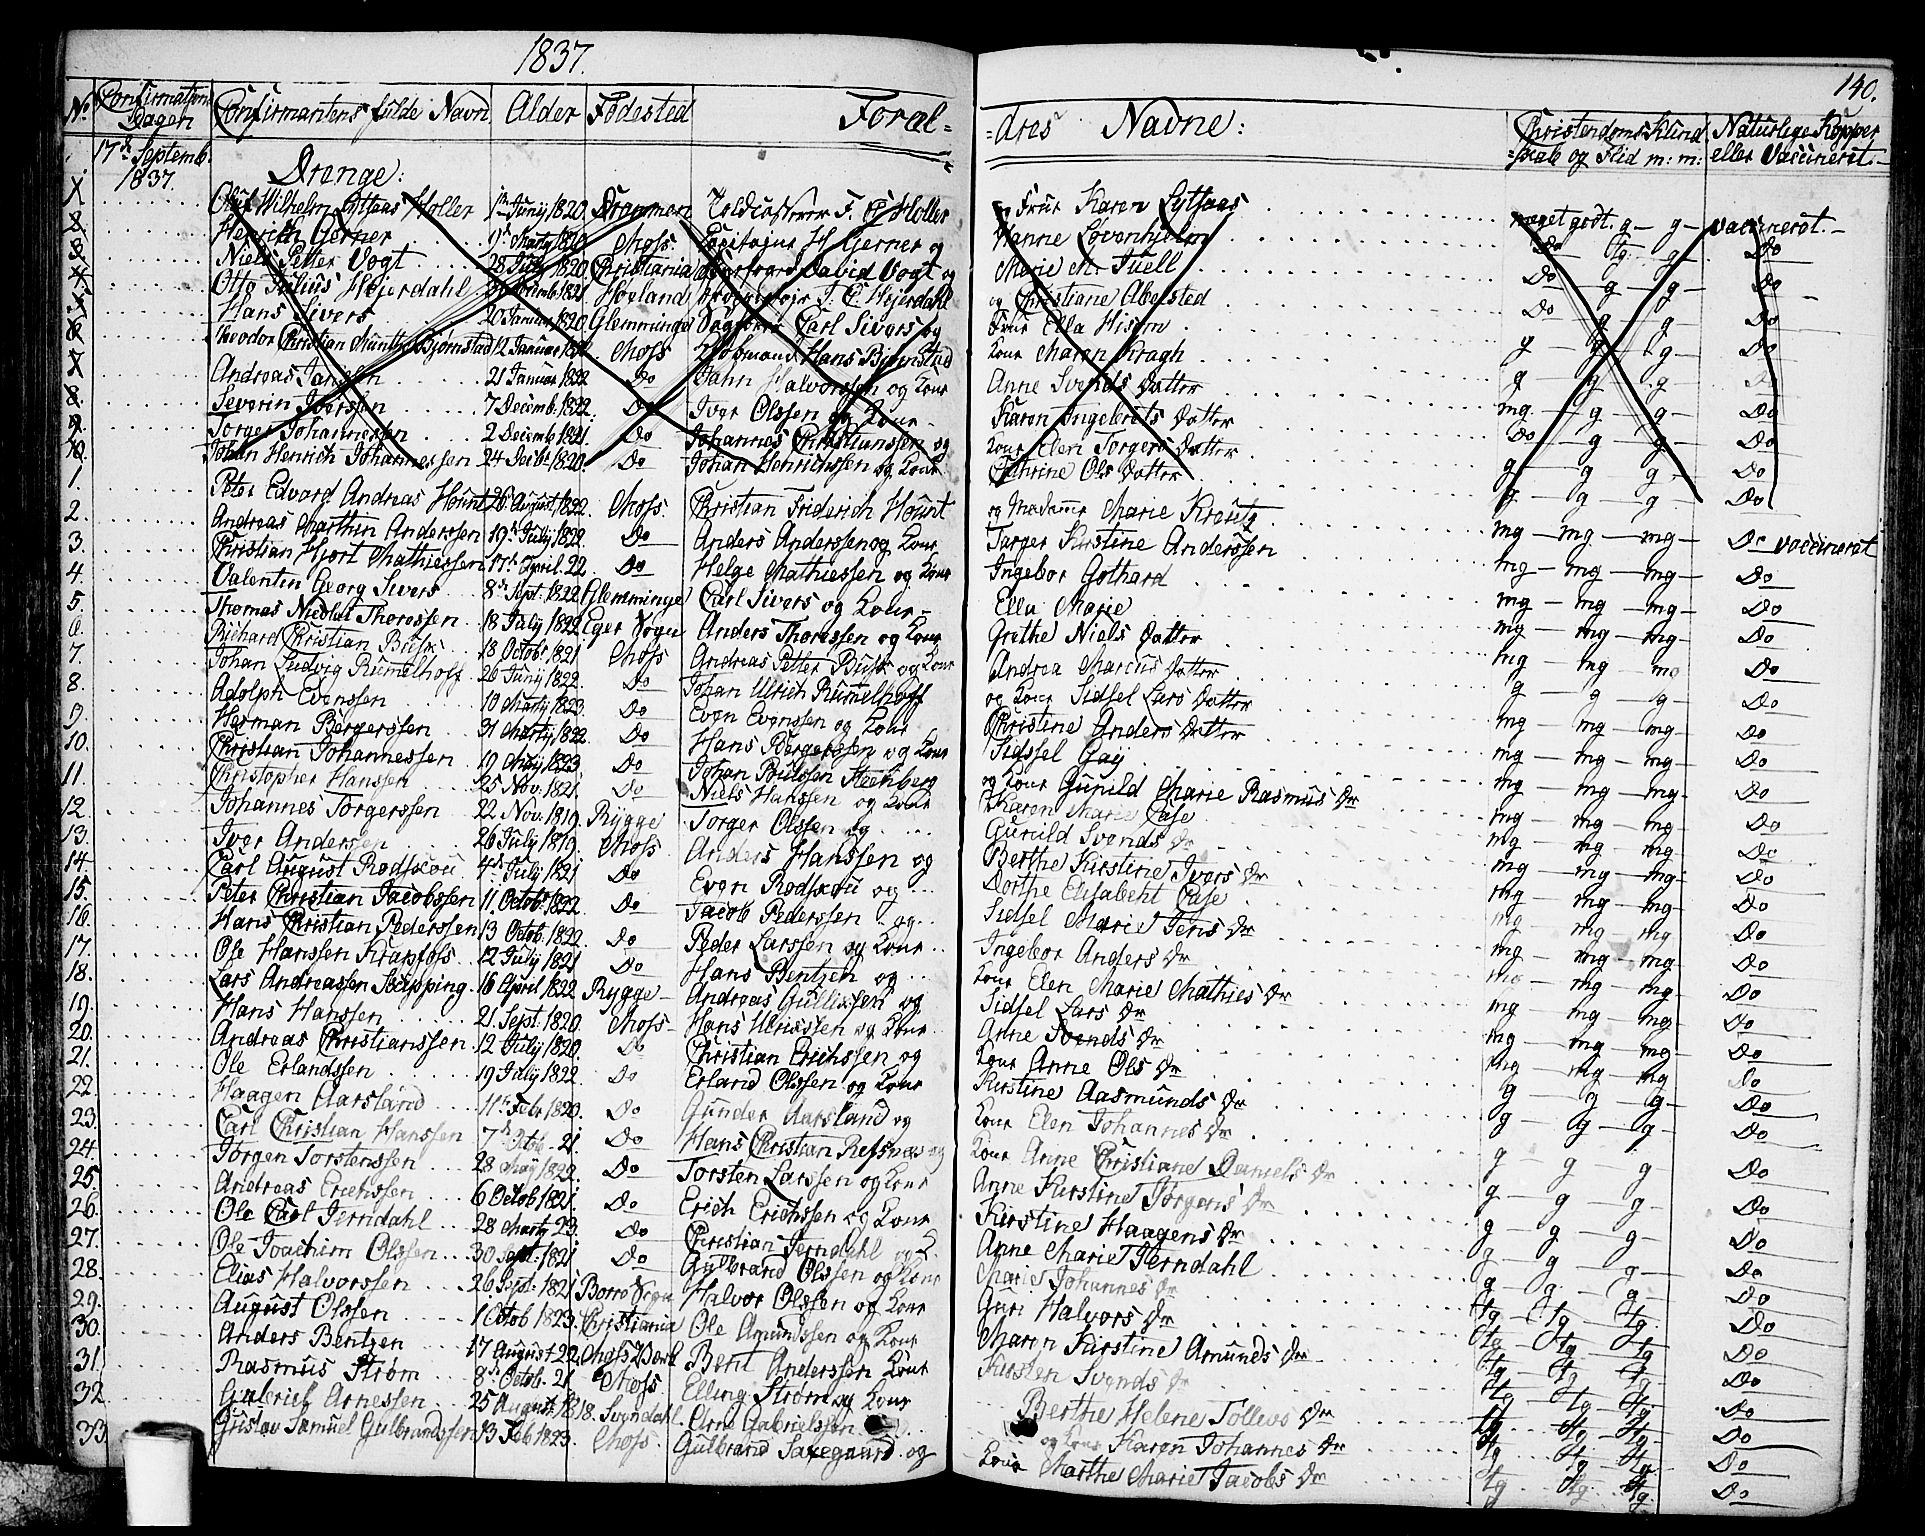 1837.
140.
No. Confirmations Dagen Confirmantens fulde Navn Alder Fødested Foræl= =dres Navne: Christendoms Kund =skab og Flid m: m: Naturlige Kopper eller Vaccineret.
17de Septemb. 1837. Drenge:
Oluf Wilhelm Lytsaas Holler Juny 1820 Drammen F. Holler Frue Karen Lytsaas meget godt. g — g — vaccineret.
2. Henrich Gerner Marty Moss. H Gerner og Hanne Løvenhjelm Do Tg. g Do
3. Niels Petter Vogt 28 July 1820. Christiania David Vogt og Marie M. Juell Do g g Do
4. Otto Julius Hejerdahl 1821 Høeland Hejerdahl og Christiane Abelsted Do g g Do
5. Hans Sivers 20 Januar 1820. Glemminge Carl Sivers og Frue Ella g g g Do
6. Theodor Christian Munthe Bjørnstad 12 Januar Moss Hans Bjørnstad Kone Maren Kragh g g g
7. Andreas Janssen 21 Januar 1822 Do Jahn Halvorssen og Kone Anne Svends Datter mg. g g Do
8. Severin Iverssen 7 Decemb. 1822. Do Iver Olssen og Kone Karen Ingebrets Datter Do g g Do
9. Torger Johannessen 2 Decemb 1821 Do Johannes Christianssen og Kone Elen Torgers Datter g g g Do
10. Johan Henrich Johannessen 24 Decbr 1820. Do Johan Henrichssen og Kone Cathrine Ols Datter g g g Do
1. Peter Edvard Andreas Hount 26 August 1822. Moss. Christian Friderich Hount og Madame Marie Kreutz mg — mg — mg — Do vaccineret
2. Andreas Marthin Anderssen 19de July 1822. Do Anders Anderssen og Kone Targer Kirstine Anderssen mg — mg — mg — Do
3. Christian Hjort Mathiessen 17de April. 22. Do Helge Mathiessen og Kone Ingebor Gothard mg — mg — mg — Do
4. Valentin Georg Sivers 8de Sept. 1822. Glemminge Carl Sivers og Kone Ella Marie mg — mg — mg — Do
5. Thomas Nicolai Thoressen 18 July 1822 Eger Sogn Anders Thoressen og Kone Grethe Niels Datter mg — mg mg Do
6. Richard Christian Busk 18 Octobr 1821 Moss Andreas Petter Busk og Kone Andrea Marcus Datter g — g g — Do
7. Johan Ludvig Rumelhoff 26 Juny 1822. Do Johan Ulrich Rumelhoff og Kone Sidsel Lars Datter mg — mg — mg — Do
8. Adolph Evenssen 10 Marty 1823. Do Even Evenssen og Kone Christine Anders Datter mg — mg — mg — Do
9. Herman Børgerssen 31 Marty 1822. Do Hans Børgerssen og Kone Sidssel Gaij mg — mg — mg — Do
10. Christian Johannessen 19 May 1823 Do Johan Steenberg og Kone Gunild Marie Rasmus Dr mg — mg — mg — Do
11. Christopher Hanssen 25 Nov. 1821. Do Niels Hanssen og Kone Karen Marie mg — mg — mg — Do
12. Johannes Torgerssen 22 Nov. 1819. Rygge Torger Olssen og Gunild Svends Dr mg — mg — mg — Do
13. Iver Anderssen 26 July 1819. Moss Anders Hanssen og Berthe Kirstine Ivers Dr mg — mg — mg — Do
14. Carl August Rodscou 4de July 1821 Do Even Rodscou og Dorthe Elisabeht mg — mg — mg — Do
15. Peter Christian Jacobssen 11. Octobr 1822. Do Jacob Pederssen og Sidsel Marie Jens Dr mg — mg — mg — Do
16. Hans Christian Pederssen 13 Octob. 1822. Do Peder Larssen og Kone Ingebor Anders Dr mg — mg — mg — Do
17. Ole Hanssen Kranfoss 12 July 1821 Do Hans Bentzen og Kone Elen Marie Mathies Dr mg — mg — mg — Do
18. Lars Andreassen Skipping 16 April 1822 Rygge Andreas Gullixsen og Sidsel Lars Dr mg — mg — mg — Do
19. Hans Hanssen 21. Sept. 1820. Moss Hans Ulrissen og Kone Anne Svends Dr mg — mg — mg — Do
20. Andreas Christianssen 12 July 1820. Do Christian Erichssen og Kone Anne Ols Dr mg — mg mg Do
21. Ole Erlandssen 19 July 1822. Do Erland Olssen og Kone Kirstine Aasmunds Dr g — g — g — Do
22. Haagen Aarsland 11te Febr 1820. Do Gunder Aarsland og Kone Elen Johannes Dr g — g — g — Do
23. Carl Christian Hanssen 7de Octob — 21. Do Hans Christian Refsnes og Kone Anne Christiane Daniels Dr g g g Do
24. Jørgen Torstenssen 28 May 1822. Do Torsten Larssen og Kone Anne Kirstine Jørgens Dr g — g g — Do
25. Andreas Erichssen 6 Octob 1821. Do Erich Erichssen og Kone Kirstine Haagens Dr g — g — g — Do
26. Ole Carl Jerndahl 28 Marty 23. Do Christian Jerndahl og K. Anne Marie Jerndahl g — g g — Do
27. Ole Joachim Olssen 30 Sept. 1821 Do Gulbrand Olssen og Kone Marie Johannes Dr g — g — g — Do
28. Elias Halvorssen 26 Sept. 1821 Borre Sogn Halvor Olssen og Kone Guri Halvors Dr Tg — Tg — Tg. Do
29. August Olssen 1 Octob 1823. Christiania Ole Amundssen og Kone Maren Kirstine Amunds Dr Tg — Tg — Tg Do
30. Anders Bentzen 17 August 22. Moss Værk Bent Anderssen Kone Kirsten Svends Dr Tg — Tg — Tg — Do
31. Rasmus Strøm 8de Octob. 21. Moss Elling Strøm og Kone Berthe Helene Tollevs Dr Tg — Tg — Tg — Do
32. Gabriel Arnessen 25 August 1818. Svendahl. Arne Gabrielssen og Kone Karen Johannes Dr Tg Tg — Tg — Do
33 Gustav Samuel Gulbrandssen 13 Feb 1823. Moss. Gulbrand Saxegaard og Kone Marthe Marie Jacobs Dr Tg — Tg — Tg. Do